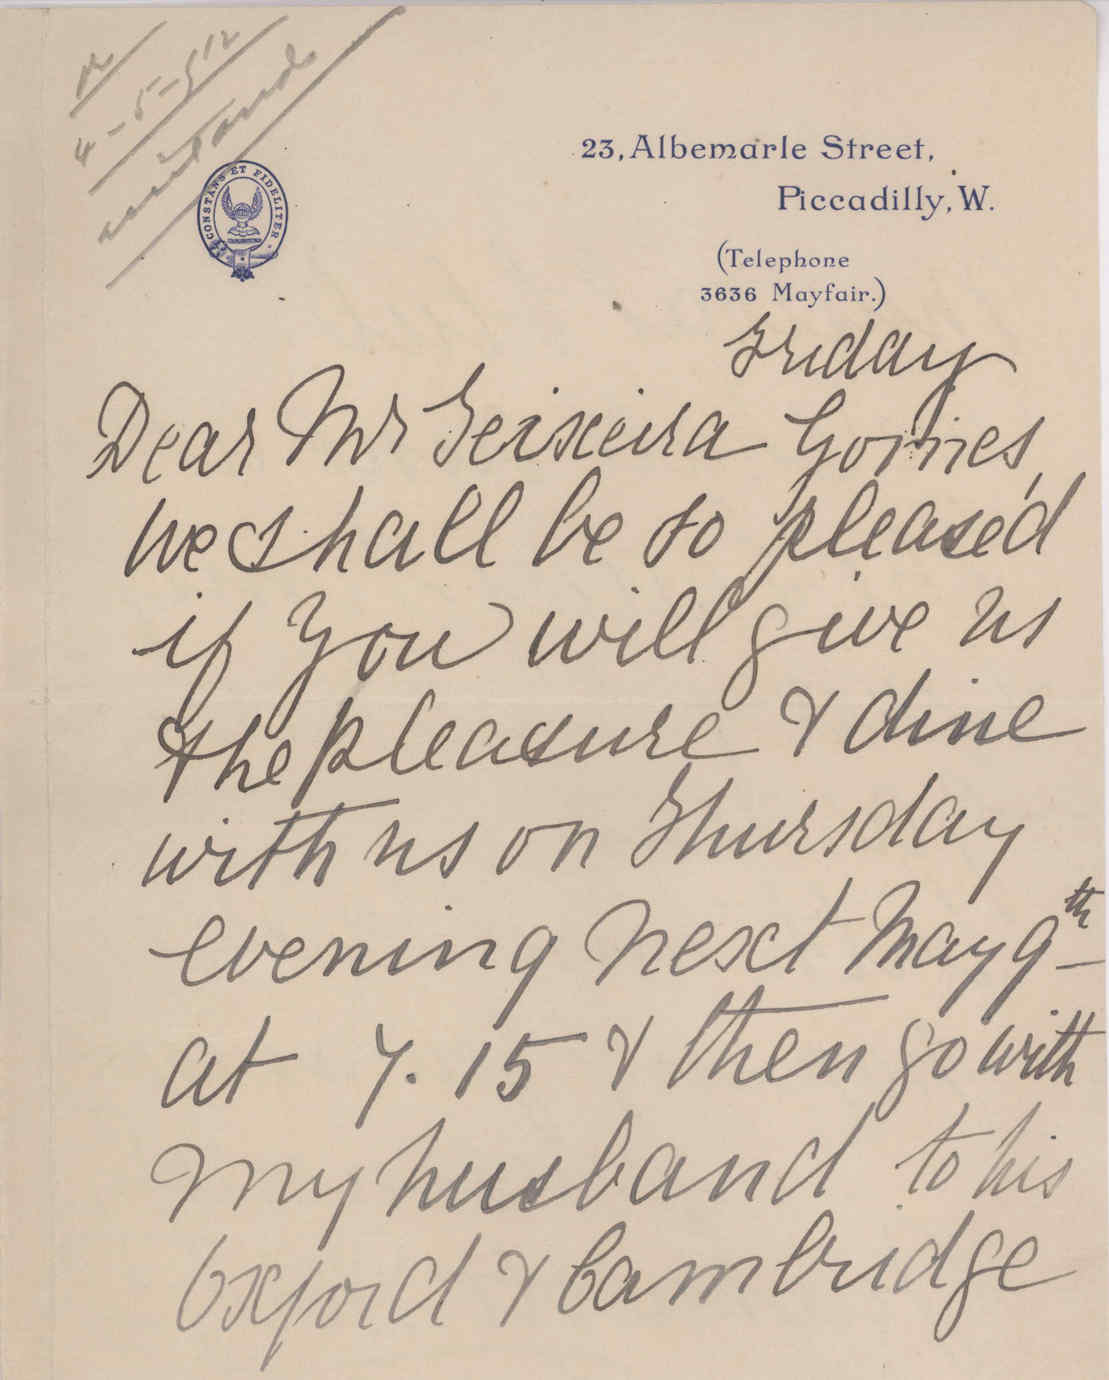 R
4-5-912
CONSTANS ET FIDELITER
23, Albemarle Street,
Piccadilly, W.
(Telephone
3636 Mayfair.)
Friday
Dear Mr Teixeira Gomes,
We shall be so pleased
if you will give us
the pleasure & dine
with us on Thursday
evening next May 9th
at 7.15 & then go with
my husband to his
Oxford & Cambridge